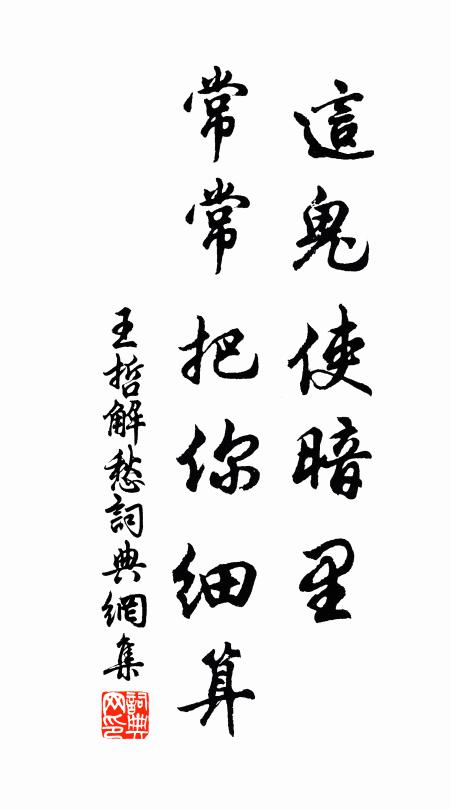 這鬼使暗里
常常把你細算
王哲解愁詞典網集
詞典
网印